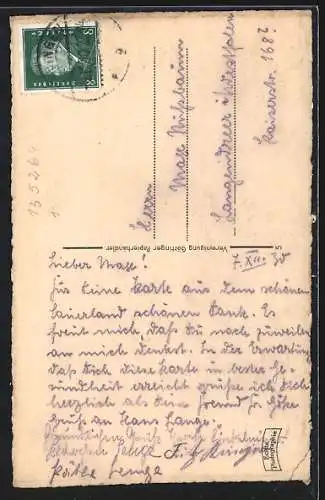 8 8
135264
Herrn
Max Nußbaum
Langendreer i/Westfalen
Kaiserstr. 168
Vereinigung Göttinger Papierhändler
7. XII. 30
Lieber Max!
Für Deine Karte aus dem schönen
Sauerland schönen Dank. Es
freut mich, daß Du noch zuweilen
an mich denkst. In der Erwartung
daß Dich diese Karte in bester Ge-
sundheit erreicht grüße ich Dich
herzlich als Dein Freund
Gruß an Hans Lange.
Fritz
Käthe
Echte
Photographie